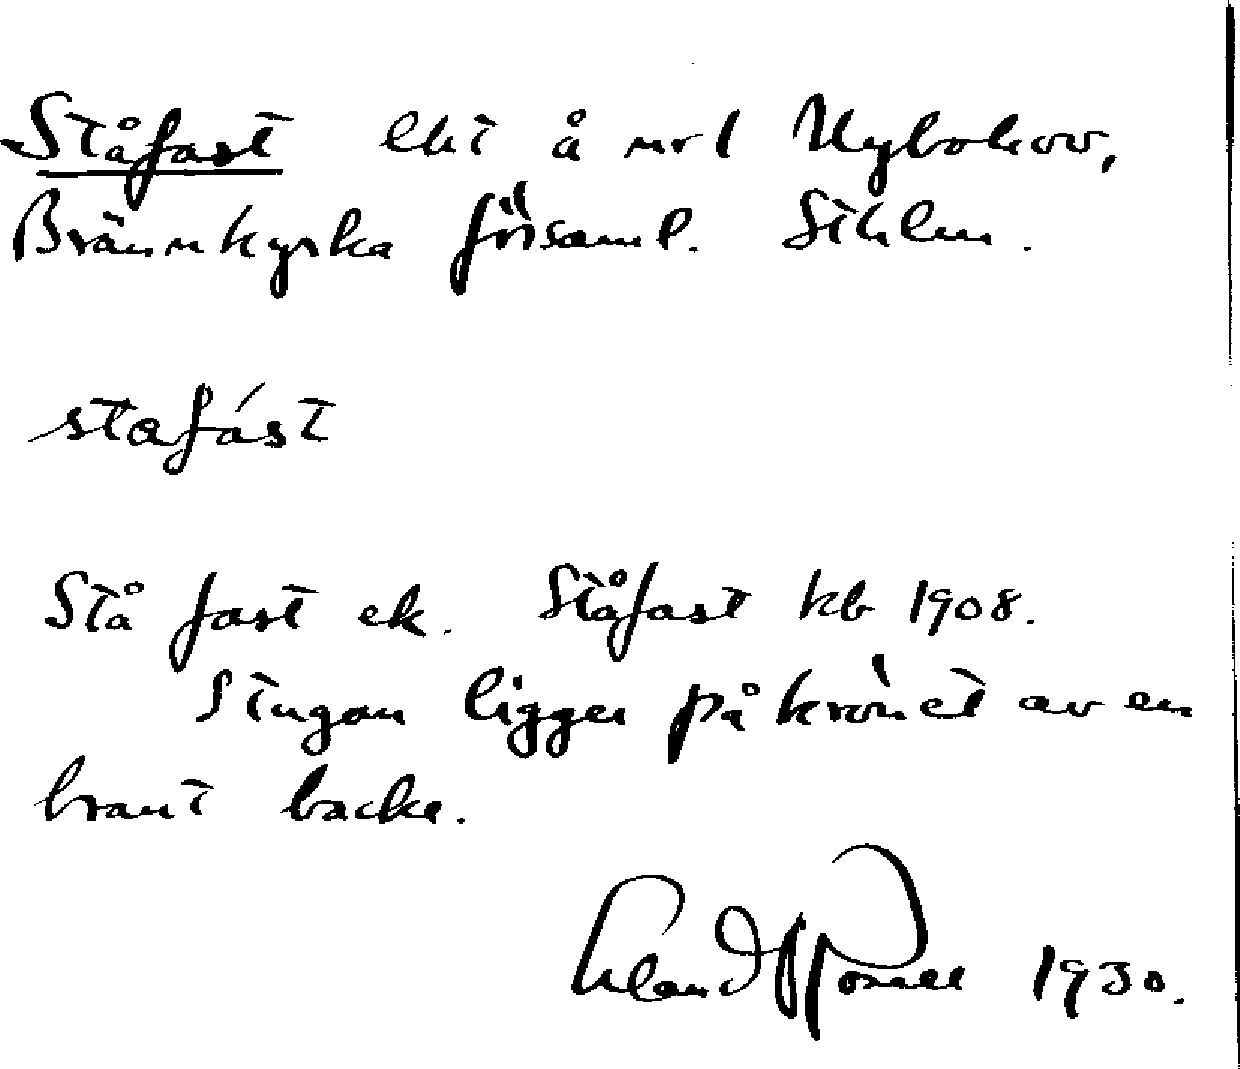 Ståfast lht å nr 1 Nybohov,
Brännkyrka församl. Sthlm.
stafást
Stå fast ek. Ståfast kb 1908.
Stugan ligger på krönet av en
brant backe.
Erland Rosell 1930.